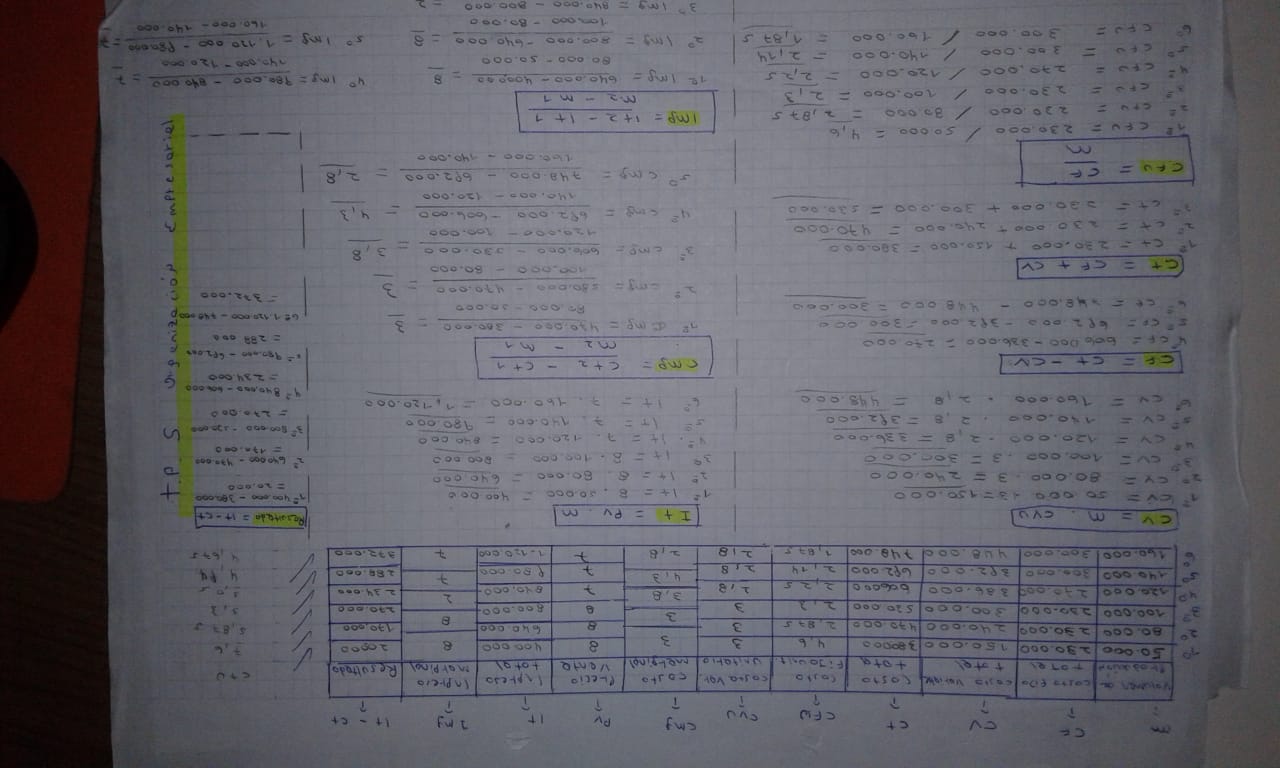 m CF CV Ct CFU CVU Cmg PV It Img It - Ct
Volumen de Producción costo Fijo total costo Variable total Costo total Costo Fijo unit. costo Var. unitario costo marginal Precio Venta Ingreso total Ingreso marginal Resultado CtU
1º 50.000 230.000 150.000 380000 4,6 3 3 8 400 000 8 20000 7,6
2º 80.000 230.000 240.000 470.000 2,875 3 8 640.000 170,000 5,875
3º 100.000 230.000 300.000 530.000 2,3 3 3 8 800.000 8 270.000 5,3
4º 120.000 270.000 336.000 606000 2,25 2,8 3,8 7 840.000 2 234.000 5,05
5º 140.000 300.000 392.000 692.000 2,14 2,8 4,3 7 980.000 7 288.000 4,94
6º 160.000 300.000 448.000 748.000 1,875 2,8 2,8 7 1.120.000 7 372.000 4,675
CV = m . CVU
1º CV = 50.000 . 3 = 150.000
2º CV = 80.000 . 3 = 240.000
3º CV = 100.000 . 3 = 300.000
4º CV = 120.000 . 2,8 = 336.000
5º CV = 140.000 . 2,8 = 392.000
6º CV = 160.000 . 2,8 = 448.000
CF = Ct - CV
4º CF = 606 000 - 336.000 = 270.000
5º CF = 692.000 - 392.000 = 300 000
6º CF = 748.000 - 448 000 = 300.000
Ct = CF + CV
1º Ct = 230.000 + 150.000 = 380.000
2º Ct = 230 000 + 240.000 = 470.000
3º Ct = 230.000 + 300.000 = 530.000
CFU = CF
m
1º CFU = 230.000 / 50000 = 4,6
2º CFU = 230.000 / 80.000 = 2,875
3º CFU = 230.000 / 100.000 = 2,3
4º CFU = 270.000 / 120.000 = 2,25
5º CFU = 300.000 / 140.000 = 2,14
6º CFU = 300.000 / 160.000 = 1,875
It = PV . m
1º It = 8 . 50.000 = 400 000
2º It = 8 . 80.000 = 640.000
3º It = 8 . 100.000 = 800 000
4º It = 7 . 120.000 = 840.000
5º It = 7 . 140.000 = 980.000
6º It = 7 . 160 000 = 1,120.000
Cmg = Ct2 - Ct1
m2 - m1
1º Cmg = 470.000 - 380.000 = 3
80.000 - 50.000
2º Cmg = 530.000 - 470.000 = 3
100.000 - 80.000
3º Cmg = 606.000 - 530.000 = 3,8
120.000 - 100.000
4º Cmg = 692.000 - 606.000 = 4,3
140.000 - 120.000
5º Cmg = 748.000 - 692.000 = 2,8
160.000 - 140.000
Img = It2 - It1
m2 - m1
1º Img = 640.000 - 400000 = 8
80.000 - 50.000
2º Img = 800.000 - 640.000 = 8
100.000 - 80.000
3º Img = 840.000 - 800.000 = 2
4º Img = 980.000 - 840 000 = 7
140.000 - 120.000
5º Img = 1.120 000 - 980.000 = 7
160.000 - 140.000
Resultado = It - Ct
1º 400.000 - 380.000
= 20.000
2º 640000 - 470.000
= 170.000
3º 800.000 - 530.000
= 270.000
4º 840.000 - 606000
= 234.000
5º 980.000 - 692.000
= 288 000
6º 1.120.000 - 748000
= 372.000
t.p. 5 Organización Empresarial